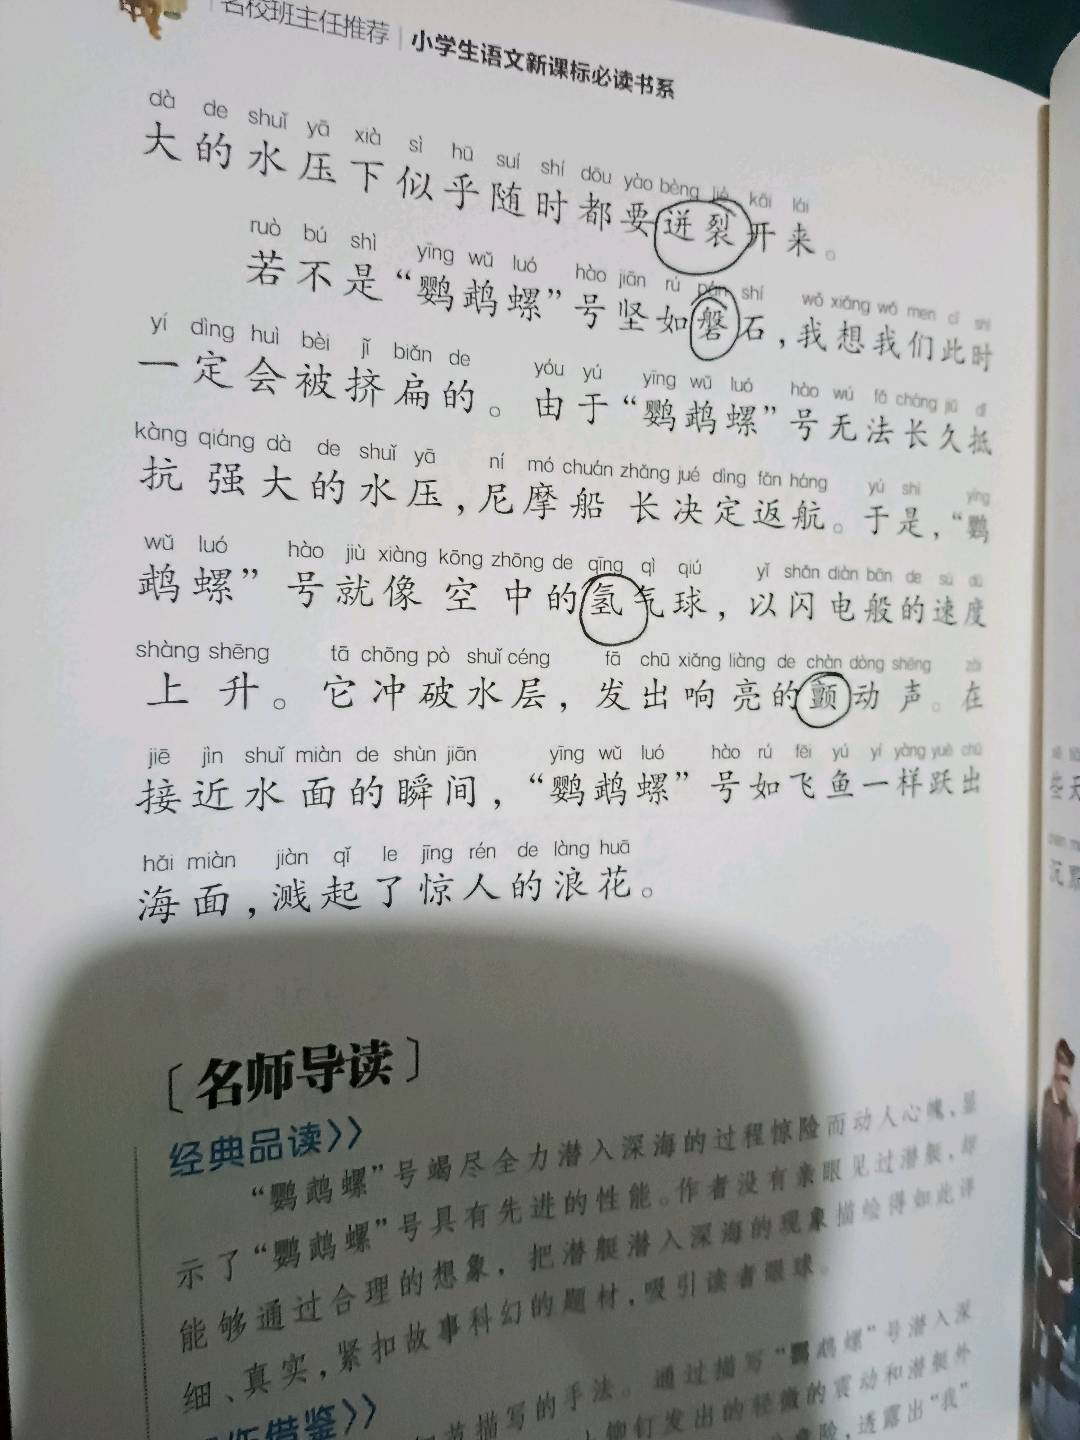 名校班主任推荐 | 小学生语文新课标必读书系
dà de shuǐ yā xià sì hū suí shí dōu yào bèng liè kāi lái
大的水压下似乎随时都要迸裂开来。
ruò bú shì yīng wǔ luó hào jiān rú pán shí wǒ xiǎng wǒ men cǐ shí
若不是“鹦鹉螺”号坚如磐石，我想我们此时
yí dìng huì bèi jǐ biǎn de yóu yú yīng wǔ luó hào wú fǎ cháng jiǔ dǐ
一定会被挤扁的。由于“鹦鹉螺”号无法长久抵
kàng qiáng dà de shuǐ yā ní mó chuán zhǎng jué dìng fǎn háng yú shì yīng
抗强大的水压，尼摩船长决定返航。于是，“鹦
wǔ luó hào jiù xiàng kōng zhōng de qīng qì qiú yǐ shǎn diàn bān de sù dù
鹉螺”号就像空中的氢气球，以闪电般的速度
shàng shēng tā chōng pò shuǐ céng fā chū xiǎng liàng de chàn dòng shēng zài
上升。它冲破水层，发出响亮的颤动声。在
jiē jìn shuǐ miàn de shùn jiān yīng wǔ luó hào rú fēi yú yí yàng yuè chū
接近水面的瞬间，“鹦鹉螺”号如飞鱼一样跃出
hǎi miàn jiàn qǐ le jīng rén de làng huā
海面，溅起了惊人的浪花。
〔名师导读〕
经典品读>>
“鹦鹉螺”号竭尽全力潜入深海的过程惊险而动人心魄，显
示了“鹦鹉螺”号具有先进的性能。作者没有亲眼见过潜艇，却
能够通过合理的想象，把潜艇潜入深海的现象描绘得如此详
细、真实，紧扣故事科幻的题材，吸引读者眼球。
借鉴>>
描写的手法。通过描写“鹦鹉螺”号潜入深
铆钉发出的轻微的震动和潜艇外
险，透露出“我”
些天
沉默